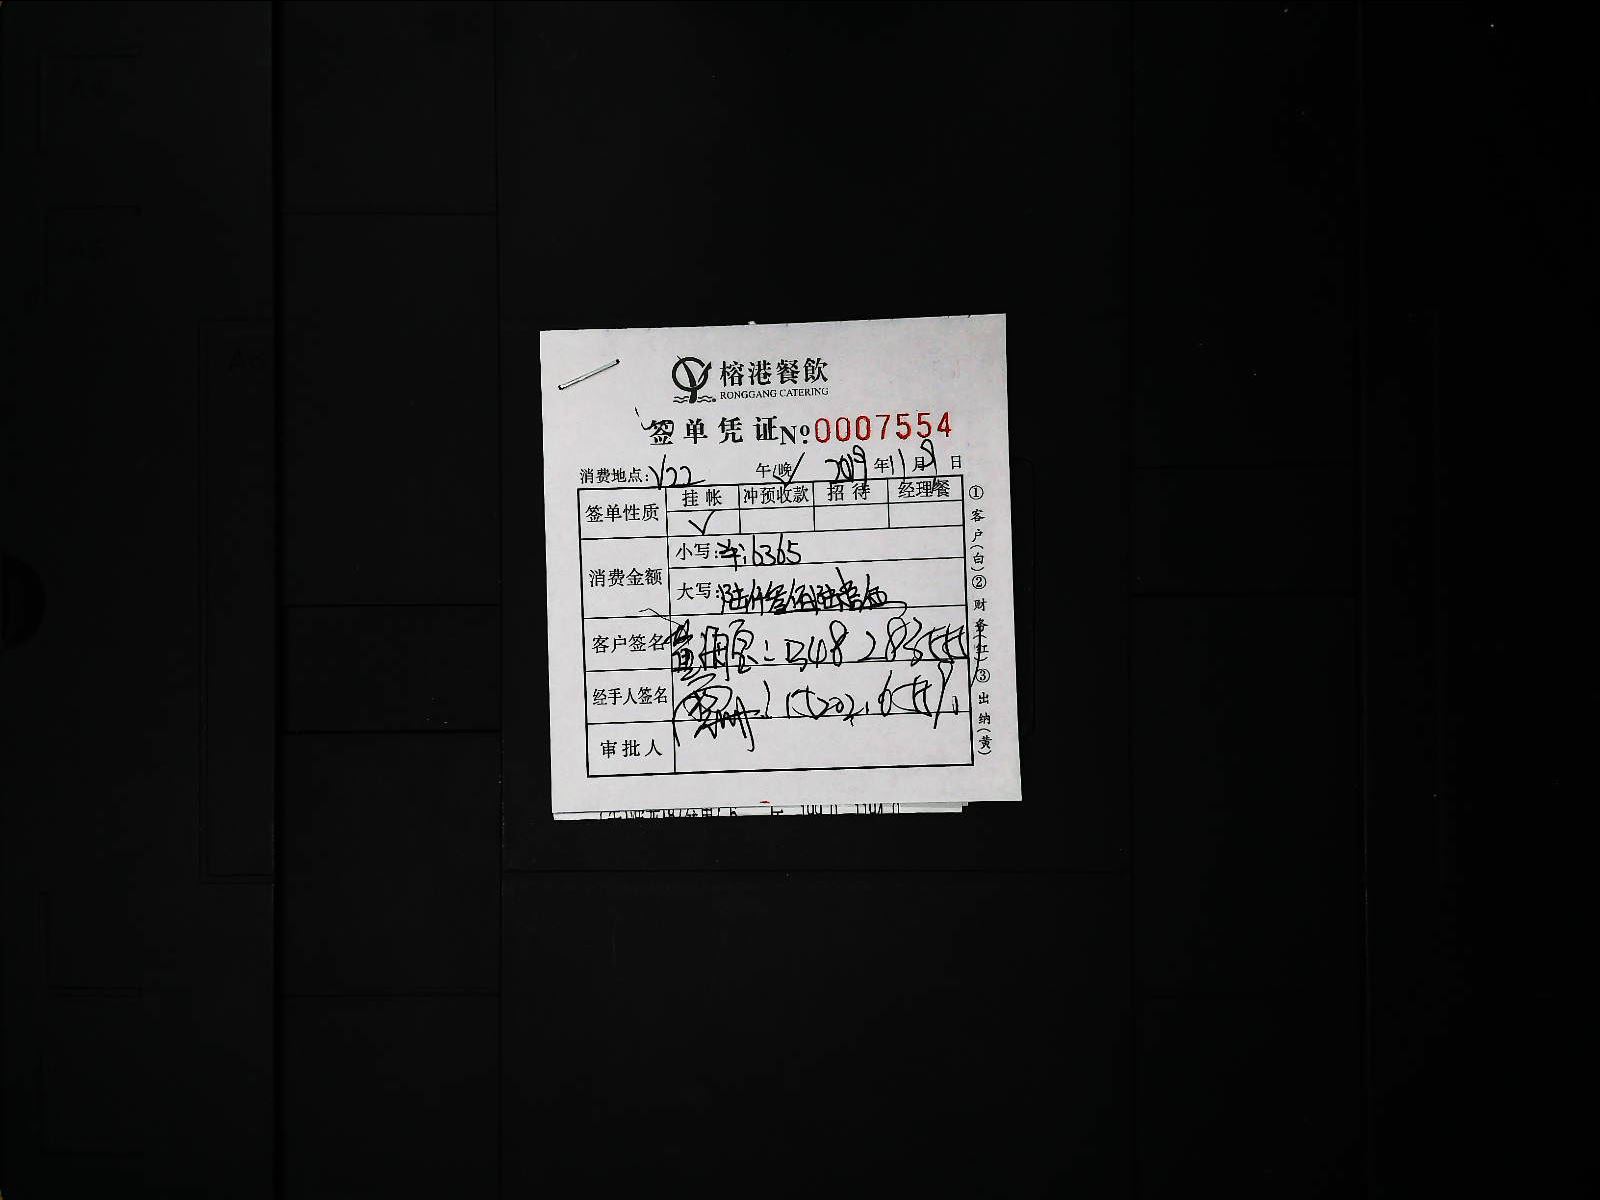 榕港餐飲
RONGGANG CATERING
签单凭证 №0007554
消费地点:V22 午(晚 2019年11月9日
签单性质 挂帐 冲预收款 招待 经理餐
✓
消费金额 小写:¥:6365
大写:陆仟叁佰陆拾伍
客户签名
经手人签名
审批人
①客户(白)②财务(红)③出纳(黄)
199.0 1194.0